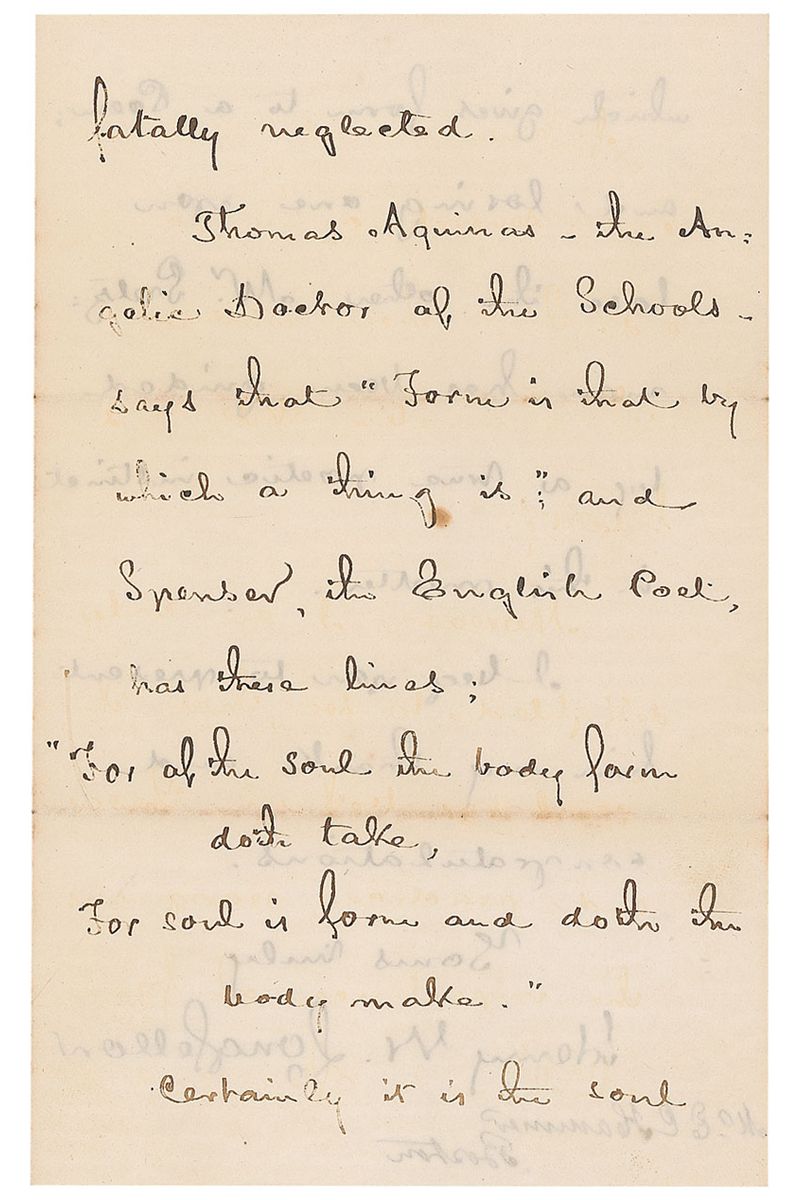 fatally neglected.
Thomas Aquinas – the An=
gelic Doctor of the Schools –
says that "Form is that by
which a thing is"; and
Spenser, the English Poet,
has these lines;
"For of the soul the body form
doth take,
For soul is form and doth the
body make."
Certainly it is the soul